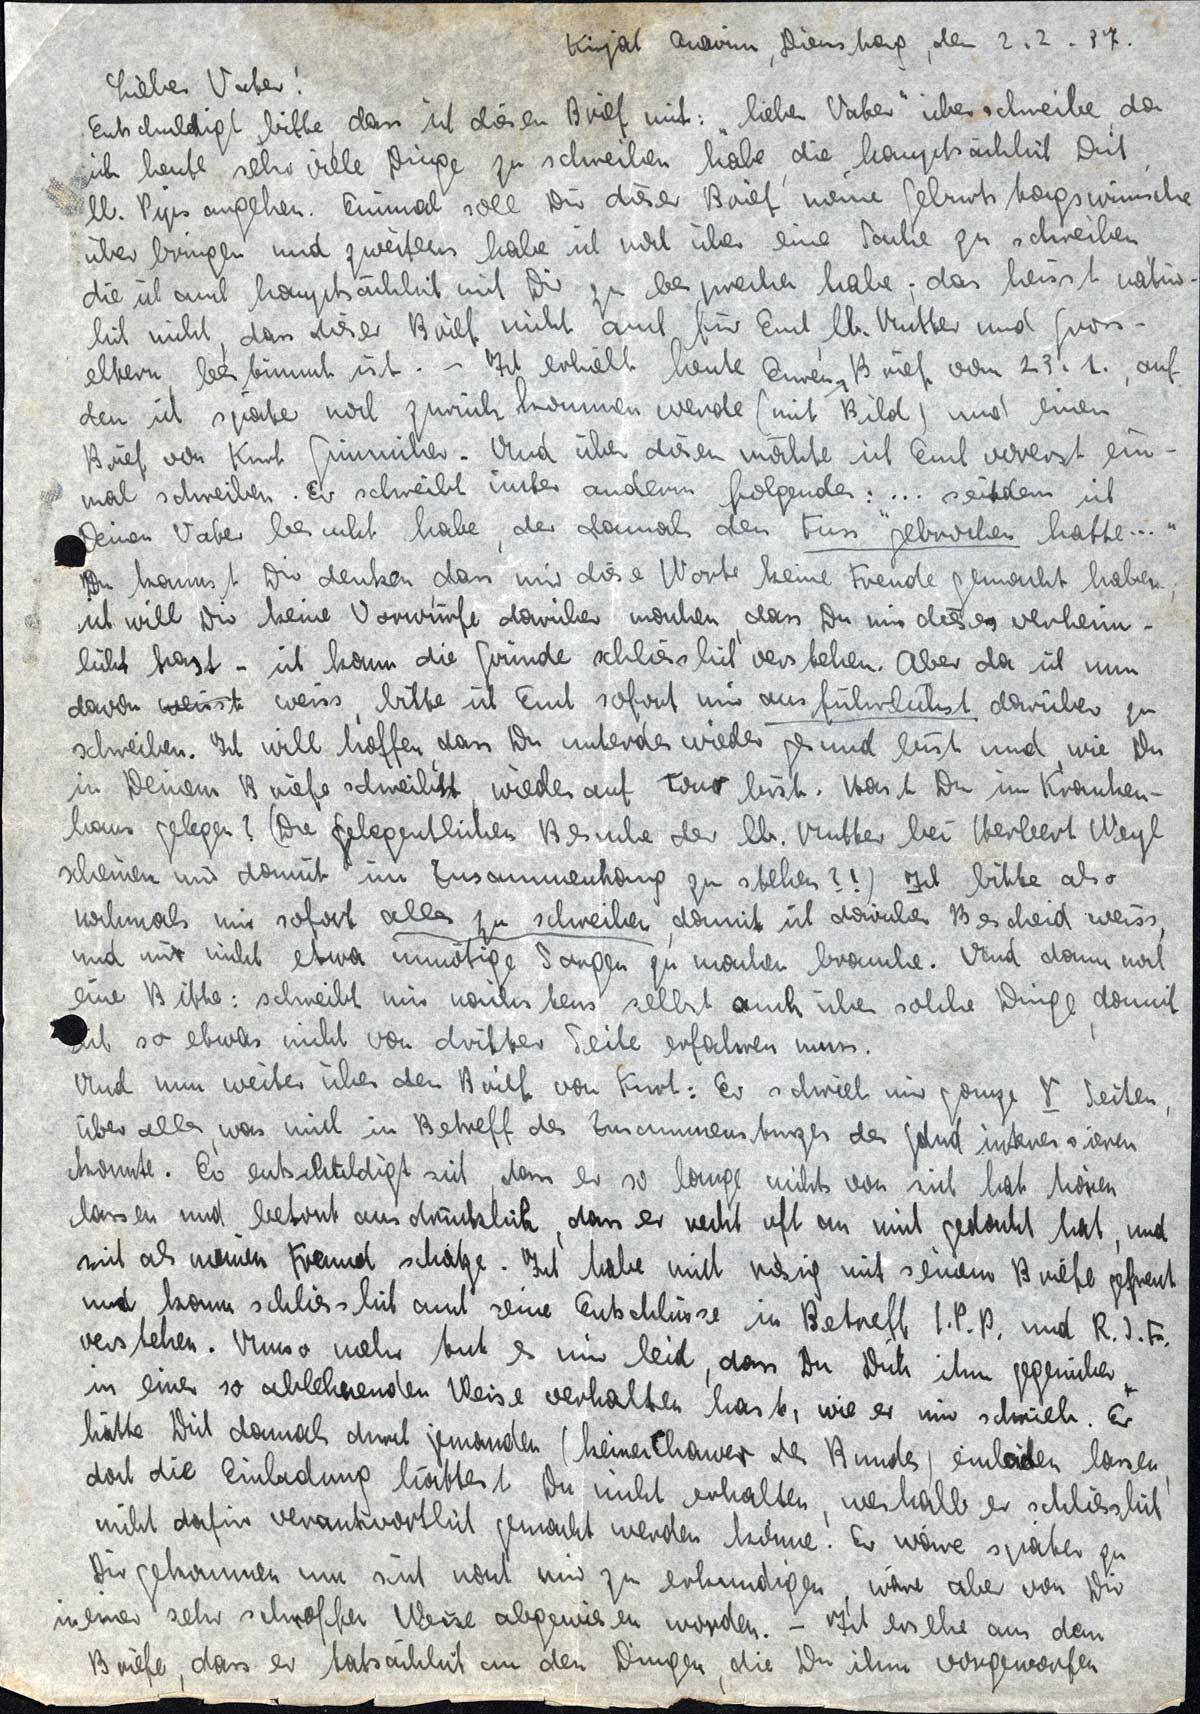 Kirjat Anavim, Dienstag, den 2.2.37.
Lieber Vater!
Entschuldigt bitte, dass ich diesen Brief mit: „lieber Vater" überschreibe, da
ich heute sehr viele Dinge zu schreiben habe, die hauptsächlich Dich,
angehen. Einmal soll Dir dieser Brief meine Geburtstagswünsche
überbringen und zweitens habe ich noch über eine Sache zu schreiben
die ich auch hauptsächlich mit Dir zu besprechen habe; das heisst natür-
lich nicht, dass dieser Brief nicht auch für Euch, lb. Mutter und Gross-
eltern, bestimmt ist. – Ich erhielt heute Euren Brief vom 23.1., auf
den ich später noch zurück kommen werde (mit Bild) und einen
Brief von Kurt. Und über diesen möchte ich Euch vorerst ein-
mal schreiben. Er schreibt unter anderm folgendes: ... seitdem ich
Deinen Vater besucht habe, der damals den Fuss "gebrochen hatte..."
Du kannst Dir denken, dass mir diese Worte keine Freude gemacht haben,
ich will Dir keine Vorwürfe darüber machen, dass Du mir dieses verheim-
licht hast – ich kann die Gründe schliesslich verstehen. Aber da ich nun
davon weiss, bitte ich Euch sofort mir ausführlichst darüber zu
schreiben. Ich will hoffen, dass Du unterdes wieder gesund bist und, wie Du
in Deinem Briefe schreibst, wieder auf Tour bist. Hast Du im Kranken-
haus gelegen? (Die gelegentlichen Besuche der lb. Mutter bei Herbert Weyl
scheinen mir damit im Zusammenhang zu stehen?!) Ich bitte also
nochmals mir sofort alles zu schreiben, damit ich darüber Bescheid weiss,
und mir nicht etwa unnötige Sorgen zu machen brauche. Und dann noch
eine Bitte: schreibt mir nächstens selbst auch über solche Dinge, damit
ich so etwas nicht von dritter Seite erfahren muss.
Und nun weiter über den Brief von Kurt: Er schrieb mir ganze 8 Seiten,
über alles, was mich in Betreff des Zusammensturzes des Bund interessieren
könnte. Er entschuldigt sich, dass er so lange nichts von sich hat hören
lassen und betont ausdrücklich, dass er recht oft an mich gedacht hat, und
sich als meinen Freund schätze. Ich habe mich riesig mit seinem Briefe gefreut
und kann schliesslich auch seine Entschlüsse in Betreff I.P.D. und R.J.F.
verstehen. Umso mehr tut es mir leid, dass Du Dich ihm gegenüber
in einer so ablehnenden Weise verhalten hast, wie er mir schrieb. Er
hätte Dich damals durch jemanden (keiner Chawer des Bundes) einladen lassen,
doch die Einladung hättest Du nicht erhalten, weshalb er schliesslich
nicht dafür verantwortlich gemacht werden könne. Er wäre später zu
Dir gekommen um sich nach mir zu erkundigen, wäre aber von Dir
in einer sehr schroffen Weise abgewiesen worden. – Ich ersehe aus dem
Briefe, dass er tatsächlich an den Dingen, die Du ihm vorgeworfen